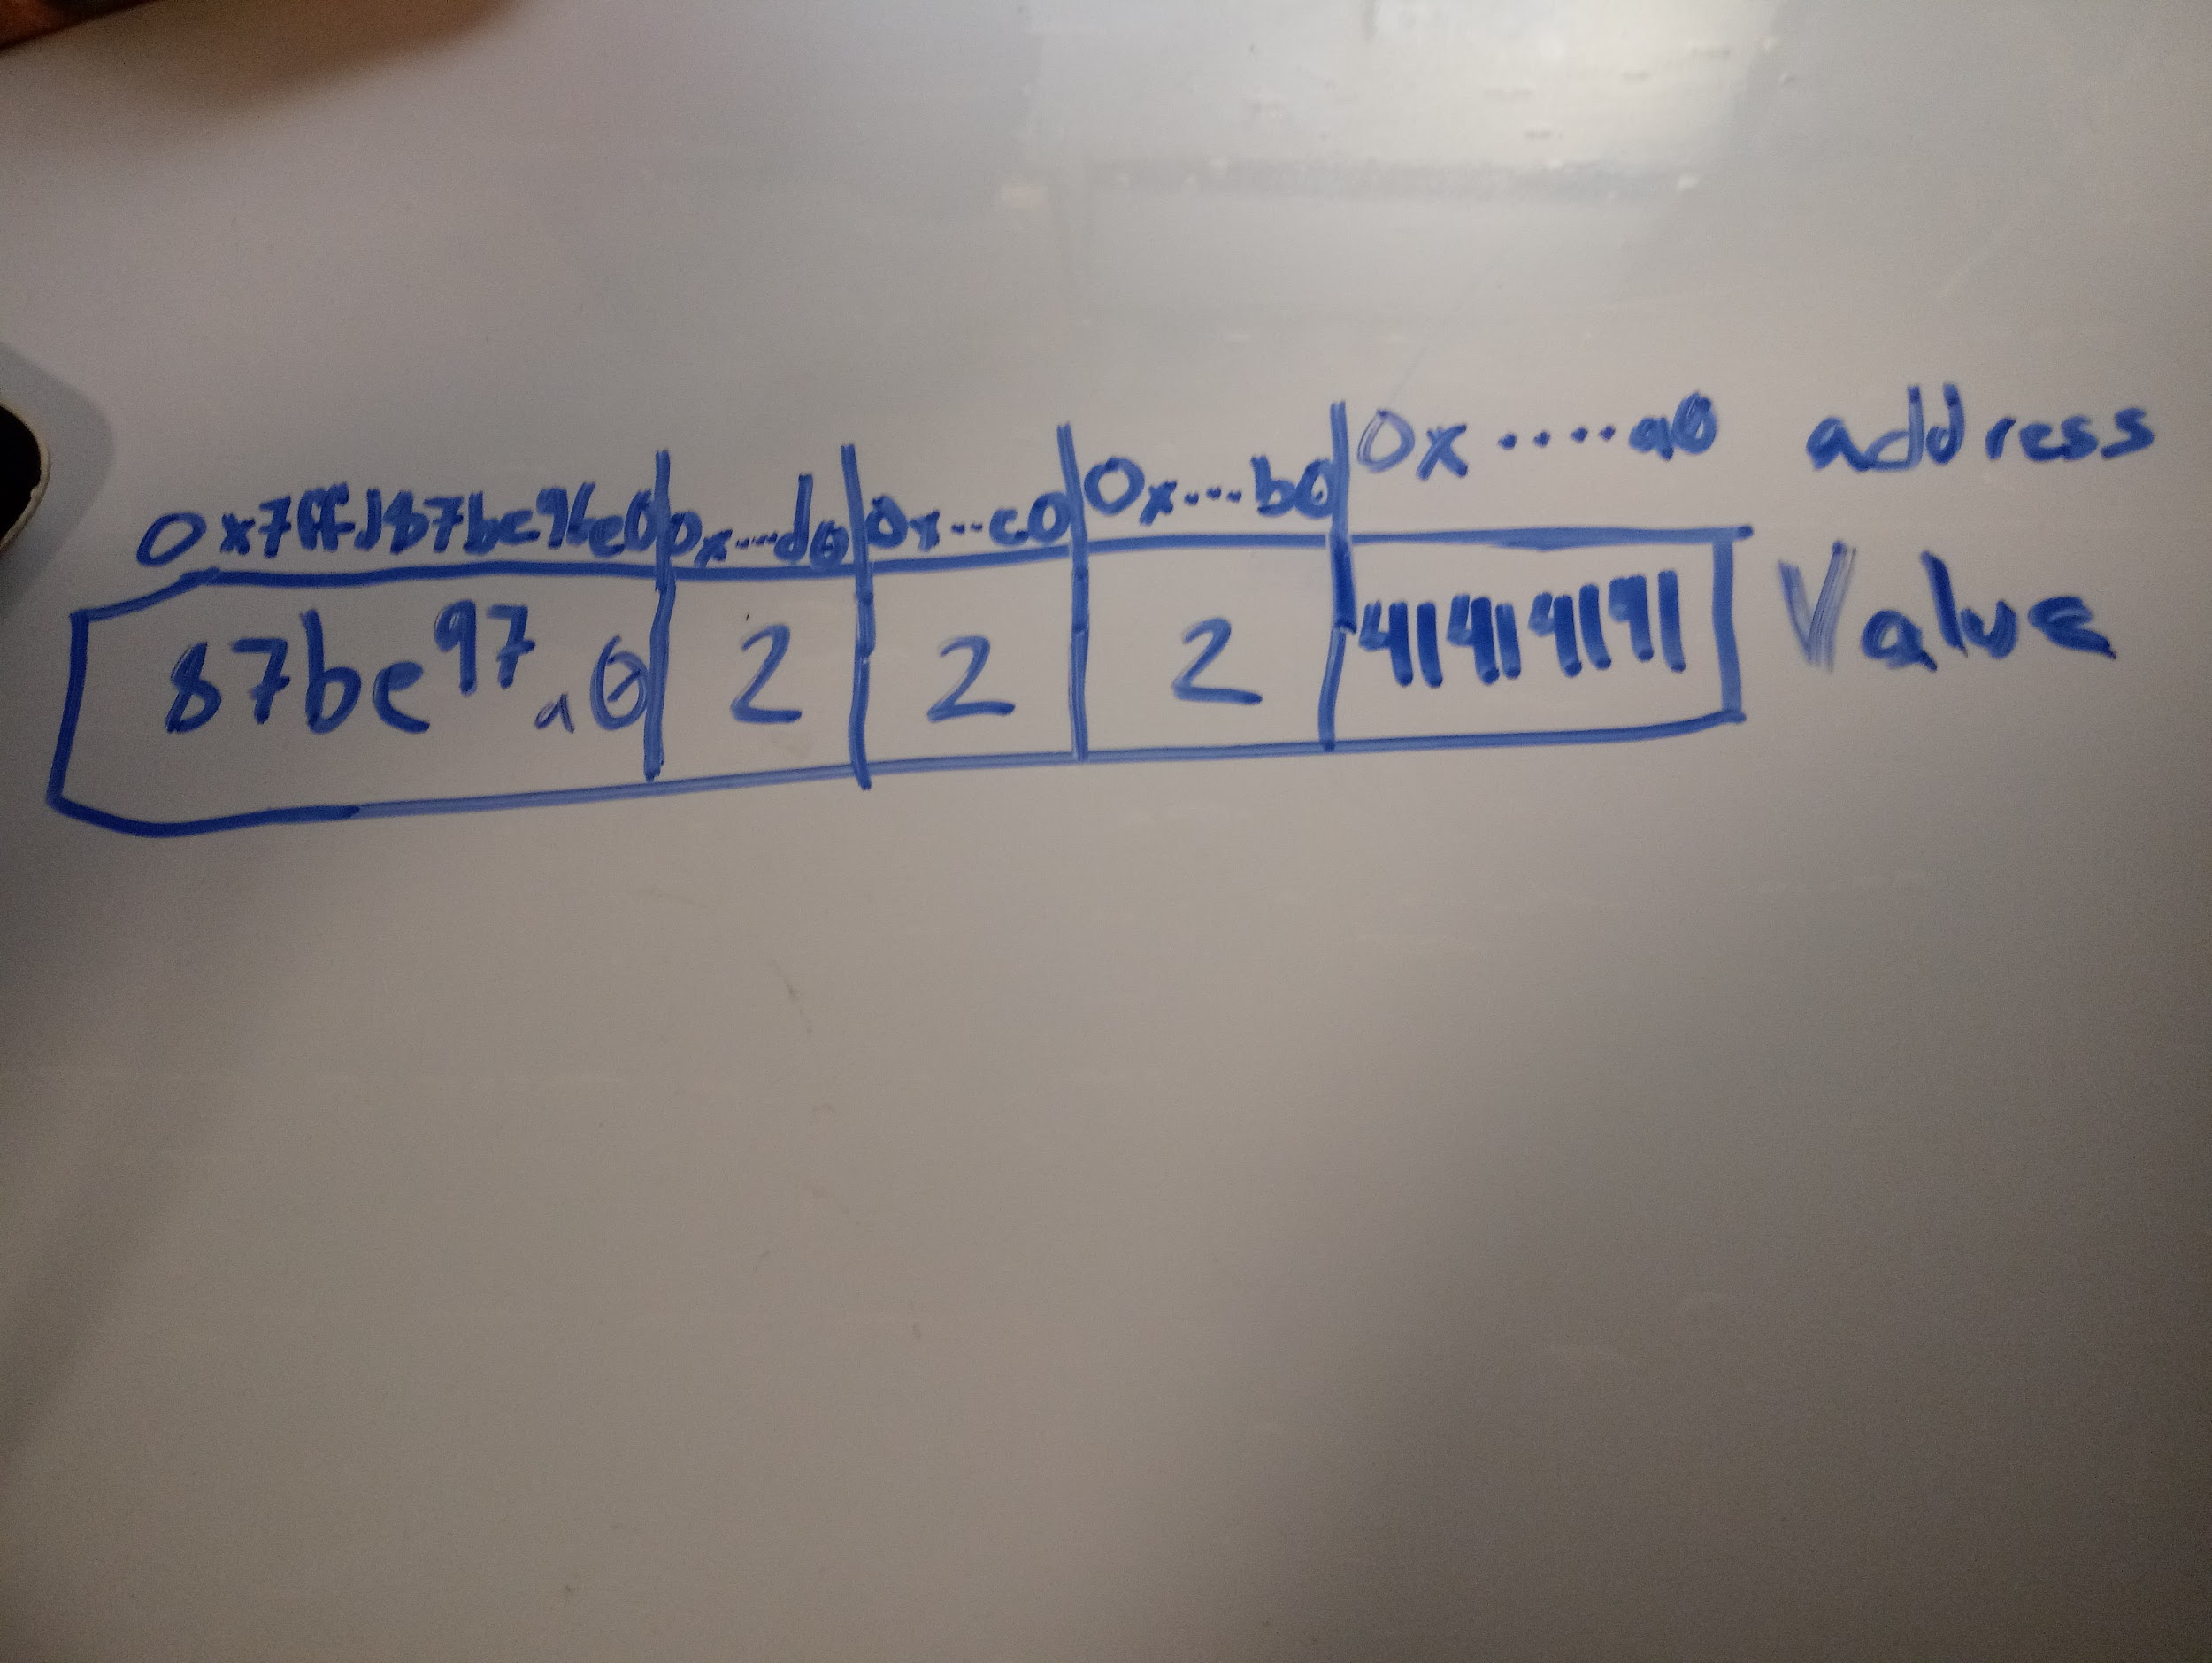 0x7ffd87be96e0 0x...d0 0x...c0 0x...b0 0x....a0 address
87be97a0 2 2 2 41414141 Value